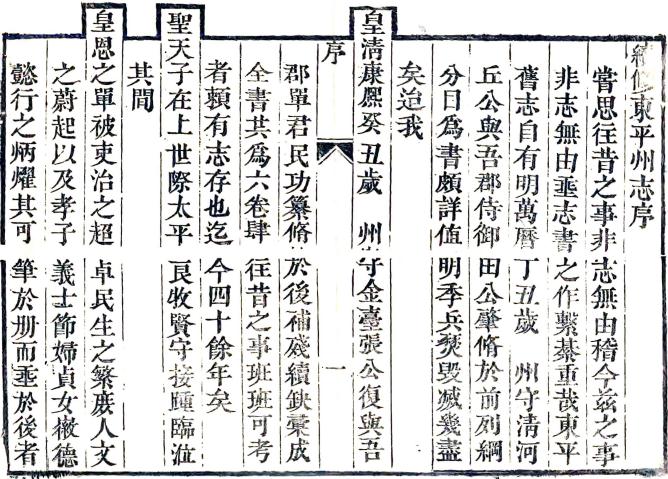 續修東平州志序
嘗思往昔之事非志無由稽今茲之事
非志無由垂志書之作繫綦重哉東平
舊志自有明萬曆丁丑歲 州守清河
丘公與吾郡侍御田公肇脩於前列綱
分目爲書頗詳值明季兵燹毀滅幾盡
矣迨我
皇清康熙癸丑歲 州守金臺張公復與吾
序 一
郡單君民功纂脩於後補殘續缺彙成
全書共爲六卷肆往昔之事班班可考
者賴有志存也迄今四十餘年矣
聖天子在上世際太平良牧賢守接踵臨涖
其間
皇恩之單被吏治之超卓民生之繁庶人文
之蔚起以及孝子義士節婦貞女徽德
懿行之炳燿其可筆於册而垂於後者